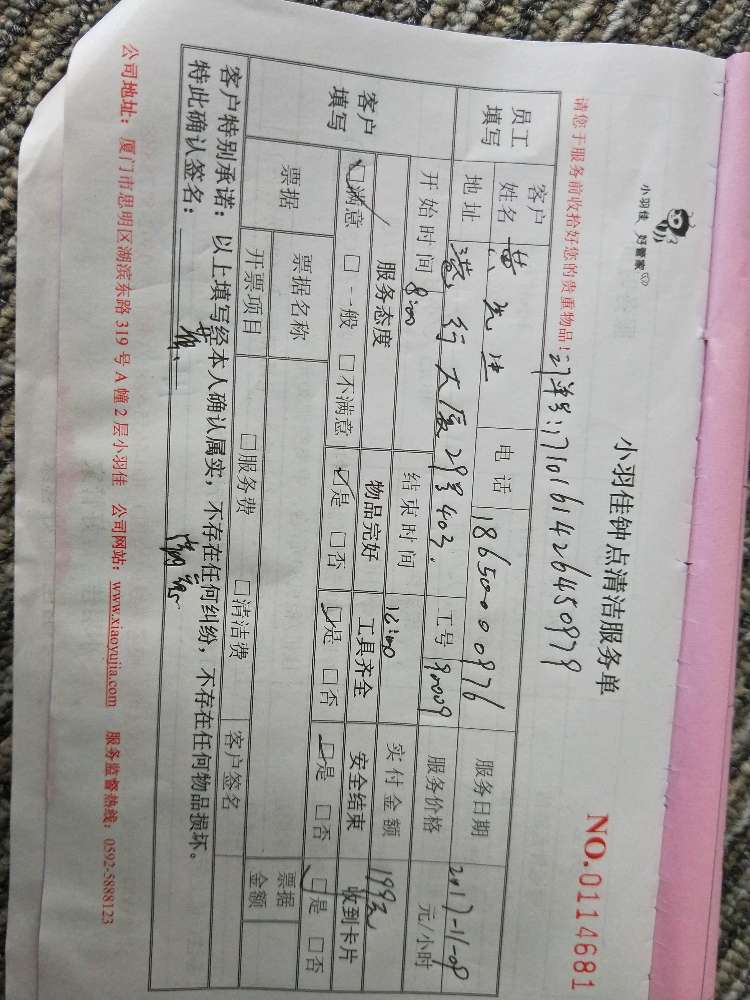 小羽佳 好管家
小羽佳钟点清洁服务单
NO.0114681
请您于服务前收拾好您的贵重物品！
订单号:1710161426450979
员工填写 客户姓名 黄先生 电话 18650000976 服务日期 2017-11-09
地址 港行大厦29号403. 工号 90009 服务价格 元/小时
客户填写 开始时间 8:00 结束时间 12:00 实付金额 199元
服务态度 物品完好 工具齐全 安全结束 收到卡片
☑满意 □一般 □不满意 ☑是 □否 ☑是 □否 ☑是 □否 ☑是 □否
票据 票据名称 票据金额
开票项目 □服务费 □清洁费 客户签名
客户特别承诺：以上填写经本人确认属实，不存在任何纠纷，不存在任何物品损坏。
特此确认签名：
公司地址：厦门市思明区湖滨东路 319 号 A 幢 2 层小羽佳 公司网站：www.xiaoyujia.com 服务监督热线：0592-5888123